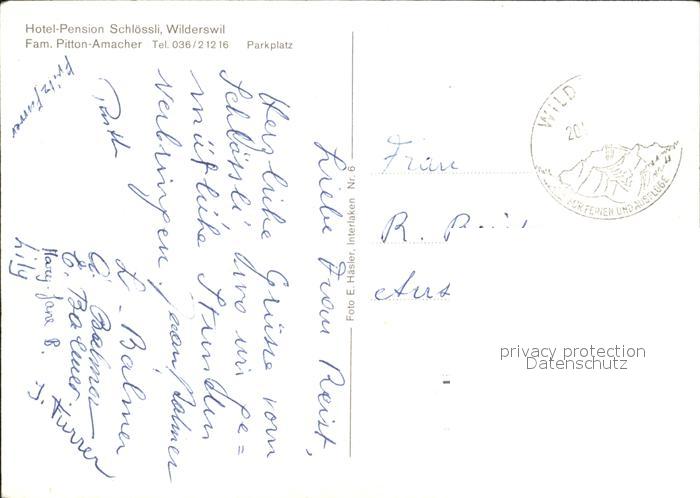 Hotel-Pension Schlössli, Wilderswil
Fam. Pitton-Amacher Tel. 036/21216 Parkplatz
Liebe Frau Reist,
Herzliche Grüsse vom
Schlössli wo wir ge=
mütliche Stunden
verbringen.
Ruth
L. Balmer
E. Balmer
Mary-Jane B.
Lily
J. Furrer
Foto E. Häsler, Interlaken Nr. 6
Frau
R.
WILD
20.
FÜR FERIEN UND AUSFLÜGE
privacy protection
Datenschutz